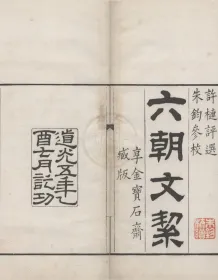 許槤評選
朱鈞參校
六朝文絜
享金寶石齋
藏版
道光五年乙
酉七月記功